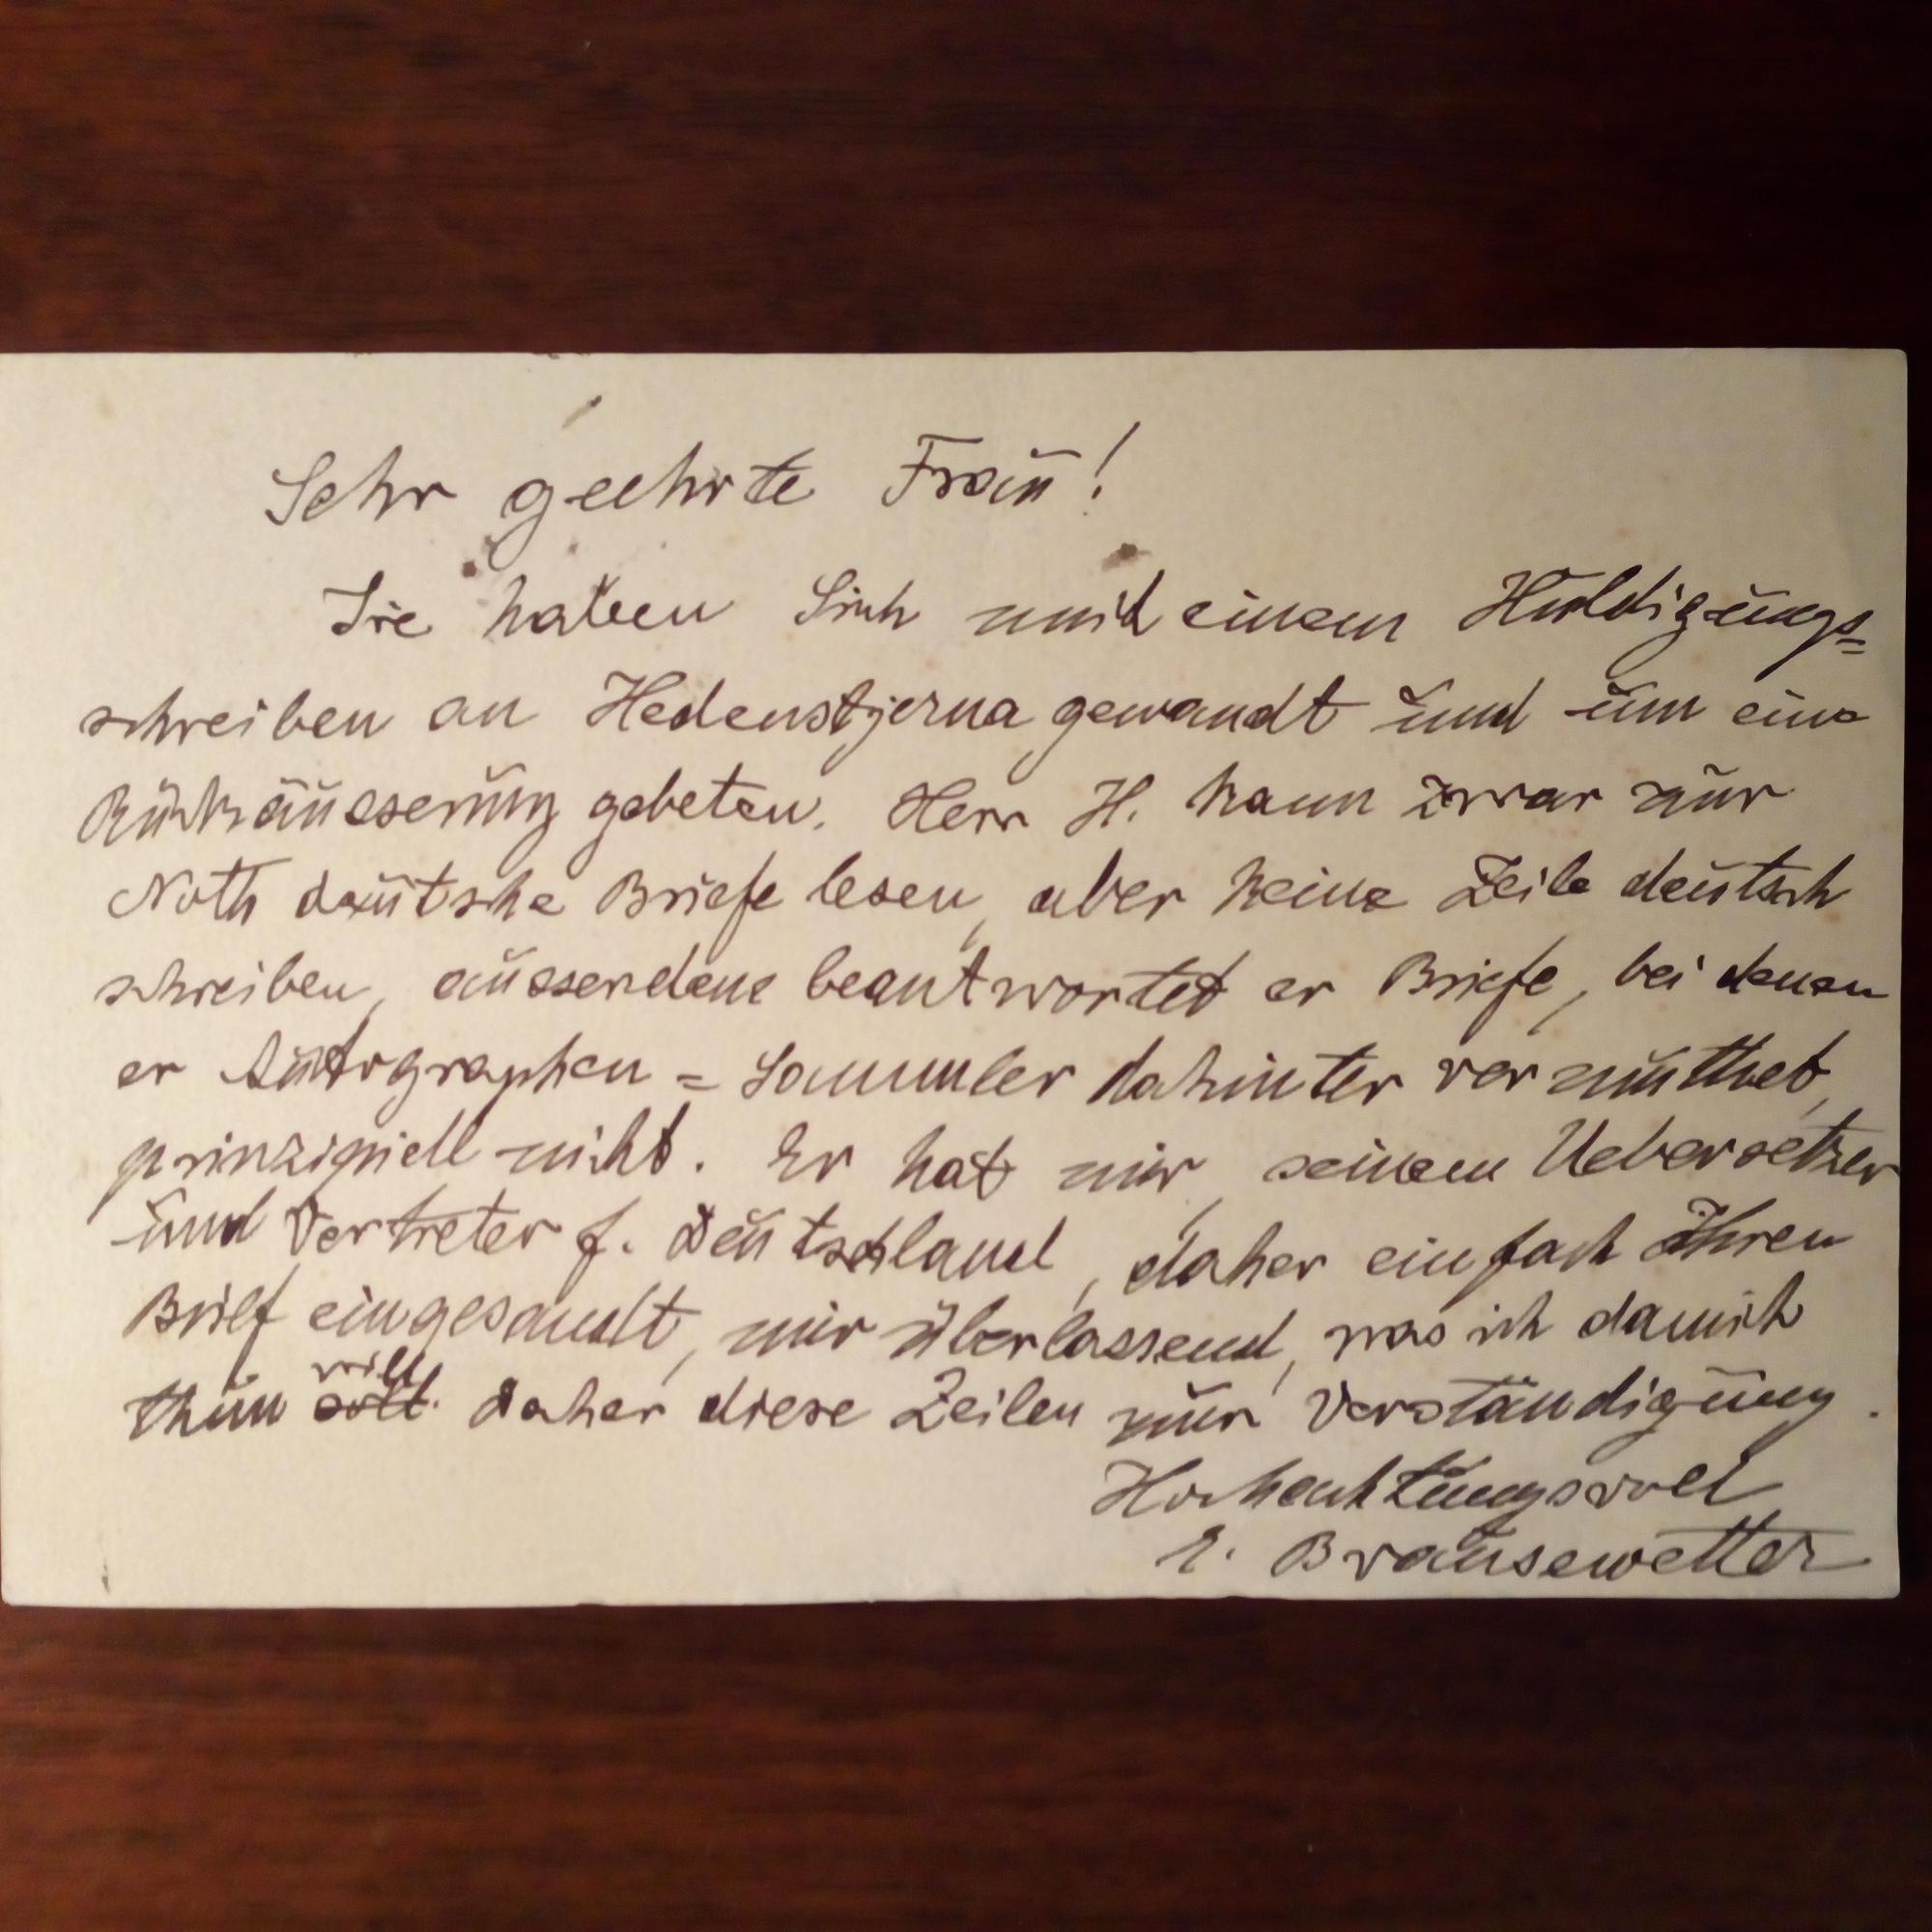 Sehr geehrte Frau!
Sie haben Sich mit einem Huldigungs=
schreiben an Hedenstjerna gewandt und um eine
Rückäusserung gebeten. Herr H. kann zwar zur
Noth deutsche Briefe lesen, aber keine Zeile deutsch
schreiben, ausserdem beantwortet er Briefe, bei denen
er Autographen=Sammler dahinter vermuthet,
prinzipiell nicht. Er hat mir, seinem Uebersetzer
und Vertreter f. Deutschland, daher einfach Ihren
Brief eingesandt, mir überlassend, was ich damit
will
thun soll. Daher diese Zeilen zur Verständigung.
Hochachtungsvoll
E. Brausewetter